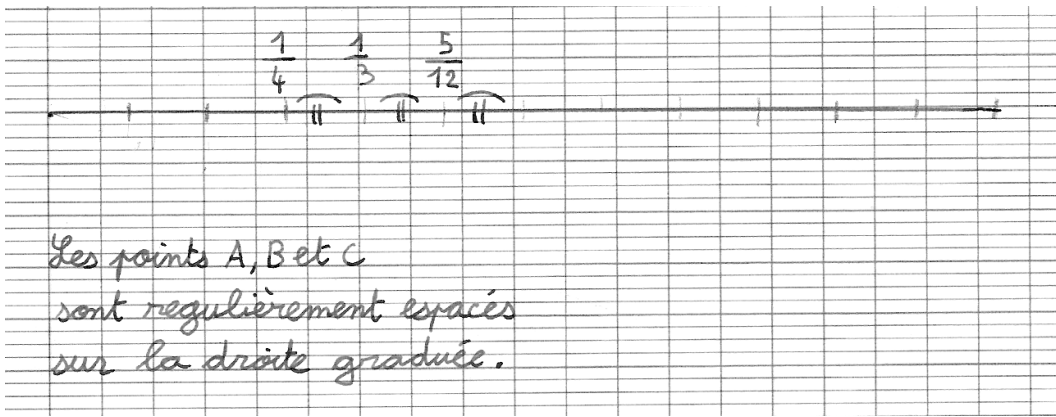 1/4 1/3 5/12
Les points A, B et C
sont regulièrement espacés
sur la droite graduée.